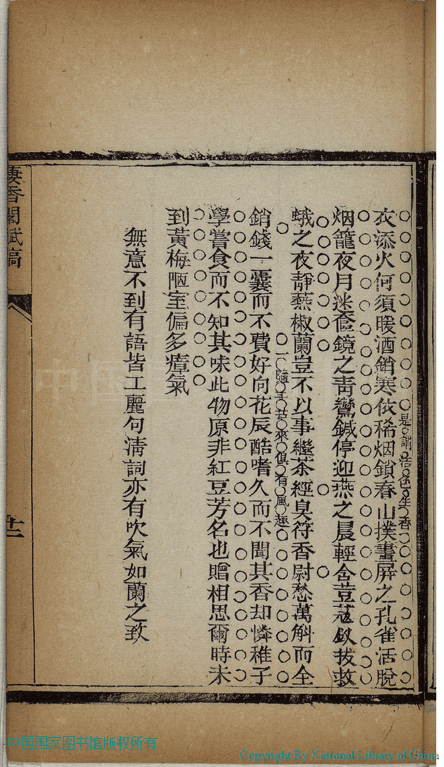 衣添火何須暖酒銷寒攸稀烟鎖春山撲畫屏之孔雀活脫
烟籠夜月迷奩鏡之靑鸞鍼停迎燕之晨輕含荳蔻釵拔救
蛾之夜靜爇椒蘭豈不以事繼茶經臭符香尉愁萬斛而全
銷錢一囊而不費好向花辰酷嗜久而不聞其香却憐稚子
學嘗食而不知其味此物原非紅豆芳名也贈相思爾時未
到黃梅陋室偏多瘴氣
無意不到有語皆工麗句淸詞亦有吹氣如蘭之致
香閣賦稿
廿一
中国国家图书馆版权所有
Copyright By National Library of China